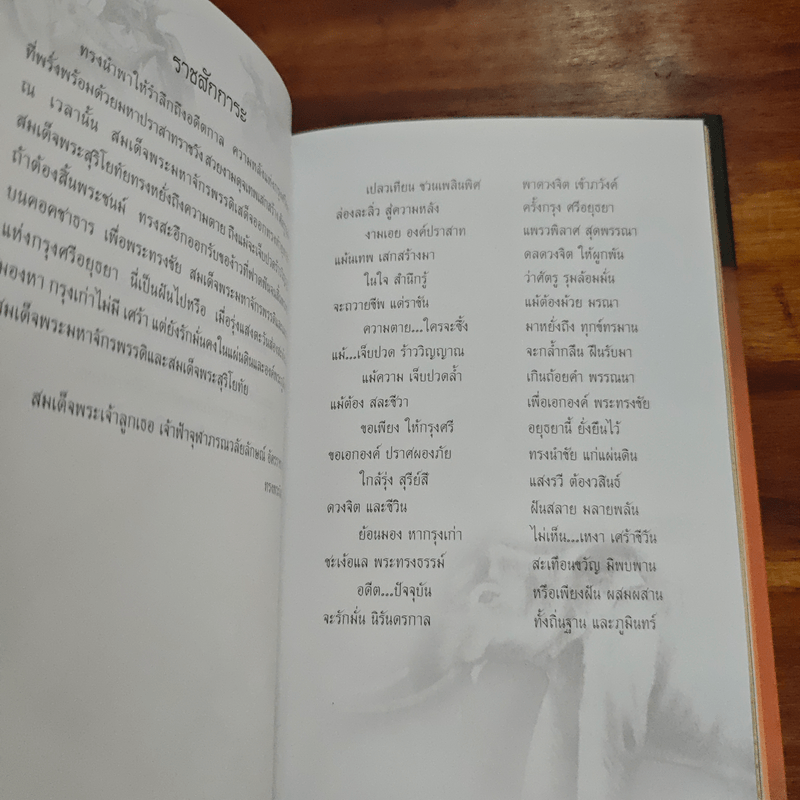 ราชสักการะ
ทรงนำพาให้รำลึกถึงอดีตกาล ความหลังแห่งกรุงศรี
ที่พรั่งพร้อมด้วยมหาปราสาทราชวัง สวยงามดุจเทพเสกสร้าง
ณ เวลานั้น สมเด็จพระมหาจักรพรรดิเสด็จออก
สมเด็จพระสุริโยทัยทรงหยั่งถึงความตาย ถึงแม้จะเจ็บปวด
ถ้าต้องสิ้นพระชนม์ ทรงสะอึกออกรับของ้าวที่ฟาดฟัน
บนคอคชาธาร เพื่อพระทรงชัย สมเด็จพระมหาจักรพรรดิ
แห่งกรุงศรีอยุธยา นี่เป็นฝันไปหรือ เมื่อรุ่งแสงตะวัน
มองหา กรุงเก่าไม่มี เศร้า แต่ยังรักมั่นคงในแผ่นดินและองค์
สมเด็จพระมหาจักรพรรดิและสมเด็จพระสุริโยทัย
สมเด็จพระเจ้าลูกเธอ เจ้าฟ้าจุฬาภรณวลัยลักษณ์
เปลวเทียน ชวนเพลินพิศ พาดวงจิต เข้าภวังค์
ล่องละลิ่ว สู่ความหลัง ครั้งกรุง ศรีอยุธยา
งามเอย องค์ปราสาท แพรวพิลาศ สุดพรรณา
แม้นเทพ เสกสร้างมา ดลดวงจิต ให้ผูกพัน
ในใจ สำนึกรู้ ว่าศัตรู รุมล้อมมั่น
จะถวายชีพ แด่ราชัน แม้ต้องม้วย มรณา
ความตาย...ใครจะซึ้ง มาหยั่งถึง ทุกข์ทรมาน
แม้...เจ็บปวด ร้าววิญญาณ จะกล้ำกลืน ฝืนรับมา
แม้ความ เจ็บปวดล้ำ เกินถ้อยคำ พรรณนา
แม้ต้อง สละชีวา เพื่อเอกองค์ พระทรงชัย
ขอเพียง ให้กรุงศรี อยุธยานี้ ยั่งยืนไว้
ขอเอกองค์ ปราศผองภัย ทรงนำชัย แก่แผ่นดิน
ใกล้รุ่ง สุรีย์สี แสงรวี ต้องวสินธ์
ดวงจิต และชีวิน ฝันสลาย มลายพลัน
ย้อนมอง หากรุงเก่า ไม่เห็น...เหงา เศร้าชีวัน
ชะเง้อแล พระทรงธรรม์ สะเทือนขวัญ มิพบพาน
อดีต...ปัจจุบัน หรือเพียงฝัน ผสมผสาน
จะรักมั่น นิรันดรกาล ทั้งถิ่นฐาน และภูมินทร์